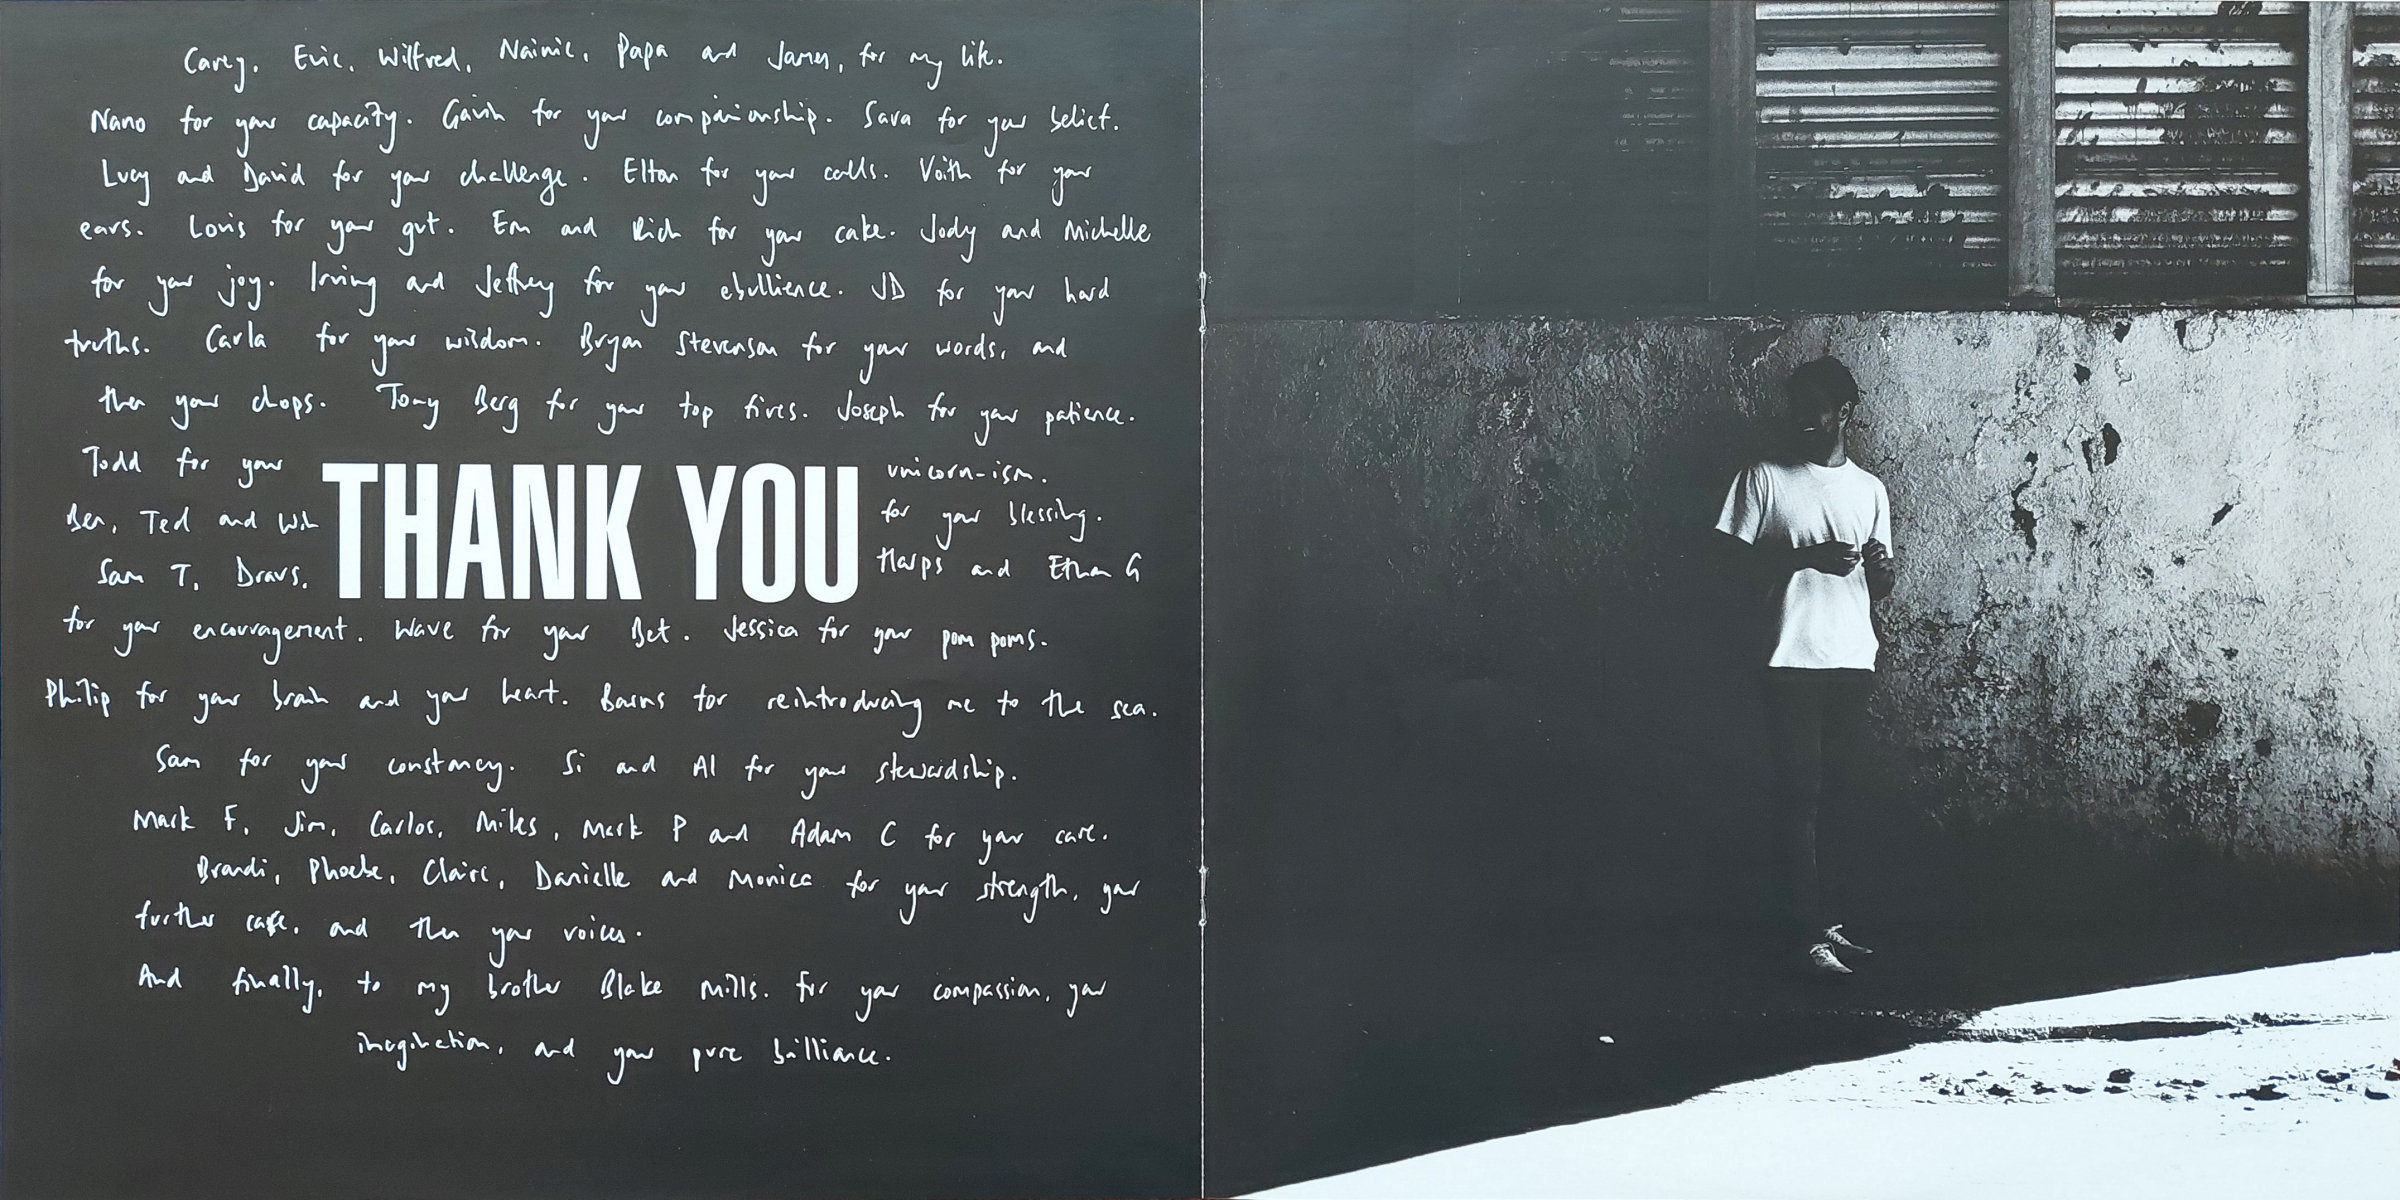 Carey, Evie, Wilfred, Nainie, Papa and James, for my life.
Nano for your capacity. Gavin for your companionship. Sara for your belief.
Lucy and David for your challenge. Elton for your calls. Voith for your
ears. Louis for your gut. Em and Rich for your cake. Jody and Michelle
for your joy. Irving and Jeffrey for your ebullience. JD for your hard
truths. Carla for your wisdom. Bryan Stevenson for your words, and
then your chops. Tony Berg for your top fives. Joseph for your patience.
Todd for your unicorn-ism.
THANK YOU
Ben, Ted and Win for your blessing.
Sam T, Dravs, Harps and Ethan G
for your encouragement. Wave for your Bet. Jessica for your pom poms.
Philip for your brain and your heart. Barns for reintroducing me to the sea.
Sam for your constancy. Si and Al for your stewardship.
Mark F, Jim, Carlos, Miles, Mark P and Adam C for your care.
Brandi, Phoebe, Claire, Danielle and Monica for your strength, your
further care, and then your voices.
And finally, to my brother Blake Mills. For your compassion, your
imagination, and your pure brilliance.